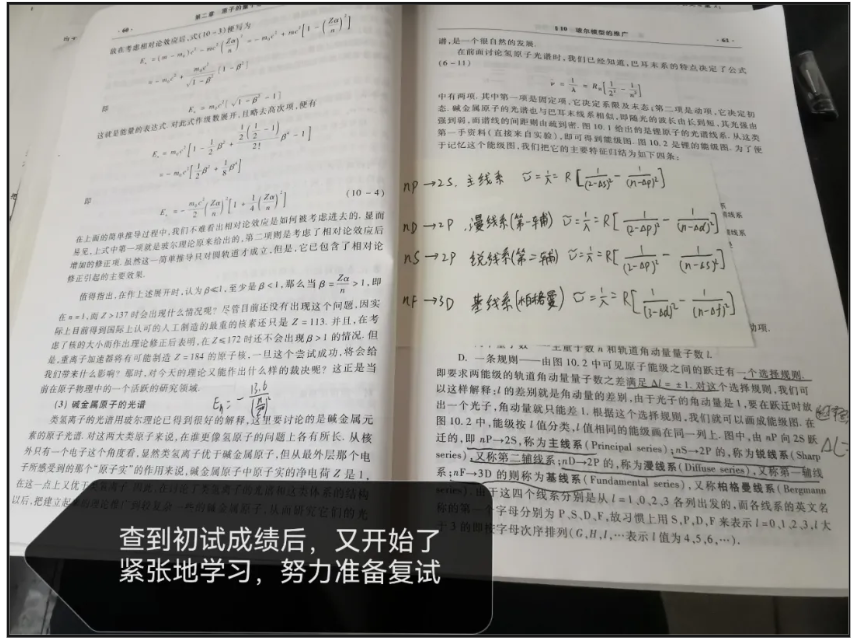 · 60 ·
第二章 原子的量子
故在考虑相对论效应后,式(10-3)便写为
即
这就是能量的表达式.对此式作级数展开,且略去高次项,便有
即
(10-4)
在上面的简单推导过程中,我们不难看出相对论效应是如何被考虑进去的.显而
易见,上式中第一项就是玻尔理论原来给出的,第二项则是考虑了相对论效应后
增加的修正项.虽然这一简单推导只对圆轨道才成立,但是,它已包含了相对论
修正引起的主要效果.
值得指出,在作上述展开时,认为β≪1,至少是β<1,那么当 β = Zα/n > 1,即
在n=1,而Z>137时会出现什么情况呢?尽管目前还没有出现这个问题,因实
际上目前得到国际上认可的人工制造的最重的核素还只是Z=113.并且,在考
虑了核的大小而作出理论修正后表明,在Z≤172时还不会出现β>1的情况.但
是,重离子加速器将有可能制造Z=184的原子核,一旦这个尝试成功,将会给
我们带来什么影响?那时,对今天的理论又能作出什么样的裁决呢?这正是当
前在原子物理中的一个活跃的研究领域.
(3) 碱金属原子的光谱
类氢离子的光谱用玻尔理论已得到很好的解释,这里要讨论的是碱金属元
素的原子光谱.对这两大类原子来说,在谁更像氢原子的问题上各有所长.从核
外只有一个电子这个角度看,显然类氢离子优于碱金属原子,但从最外层那个电
子所感受到的那个“原子实”的作用来说,碱金属原子中原子实的净电荷Z是1,
§10 玻尔模型的推广
· 61 ·
谱,是一个很自然的发展.
在前面讨论氢原子光谱时,我们已经知道,巴耳末系的特点决定了公式
(6-11)
中有两项.其中第一项是固定项,它决定系限及末态;第二项是动项,它决定初
态.碱金属原子的光谱也与巴耳末线系相似,即随光的波长由长到短,其光强由
强到弱,而谱线的间距则由疏到密.图10.1给出的是锂原子的光谱线系.从这类
第一手资料(直接来自实验),即可得到能级图.图10.2是锂的能级图.为了便
于记忆这个能级图,我们把它的主要特征归结为如下四条:
nP→2S. 主线系 ṽ=1/λ=R[1/(2-Δs)² - 1/(n-Δp)²]
nD→2P .漫线系(第一辅) ṽ=1/λ=R[1/(2-Δp)² - 1/(n-Δd)²]
nS→2P 锐线系(第二辅) ṽ=1/λ=R[1/(2-Δp)² - 1/(n-Δs)²]
nF→3D 基线系(柏格曼) ṽ=1/λ=R[1/(3-Δd)² - 1/(n-Δf)²]
D. 一条规则——由图10.2中可见原子能级之间的跃迁有一个选择规则.
即要求两能级的轨道角动量量子数之差满足Δl=±1.对这个选择规则,我们可
以这样解释:l的差别就是角动量的差别,由于光子的角动量是1,要在跃迁时放
出一个光子,角动量就只能差1.根据这个选择规则,我们就可以画成能级图.在
图10.2中,能级按l值分类,l值相同的能级画在同一列上.图中,由nP向2S跃
迁的,即nP→2S,称为主线系(Principal series);nS→2P的,称为锐线系(Sharp
series),又称第二辅线系;nD→2P的,称为漫线系(Diffuse series),又称第一辅线
系;nF→3D的则称为基线系(Fundamental series),又称柏格曼线系(Bergmann
series).由于这四个线系分别是从l=1,0,2,3各列出发的,而各线系的英文名
称的第一个字母分别为P、S、D、F,故习惯上用S,P,D,F来表示l=0,1,2,3,l大
于3的即按字母次序排列(G,H,I,…表示l值为4,5,6,…).
查到初试成绩后，又开始了
紧张地学习，努力准备复试